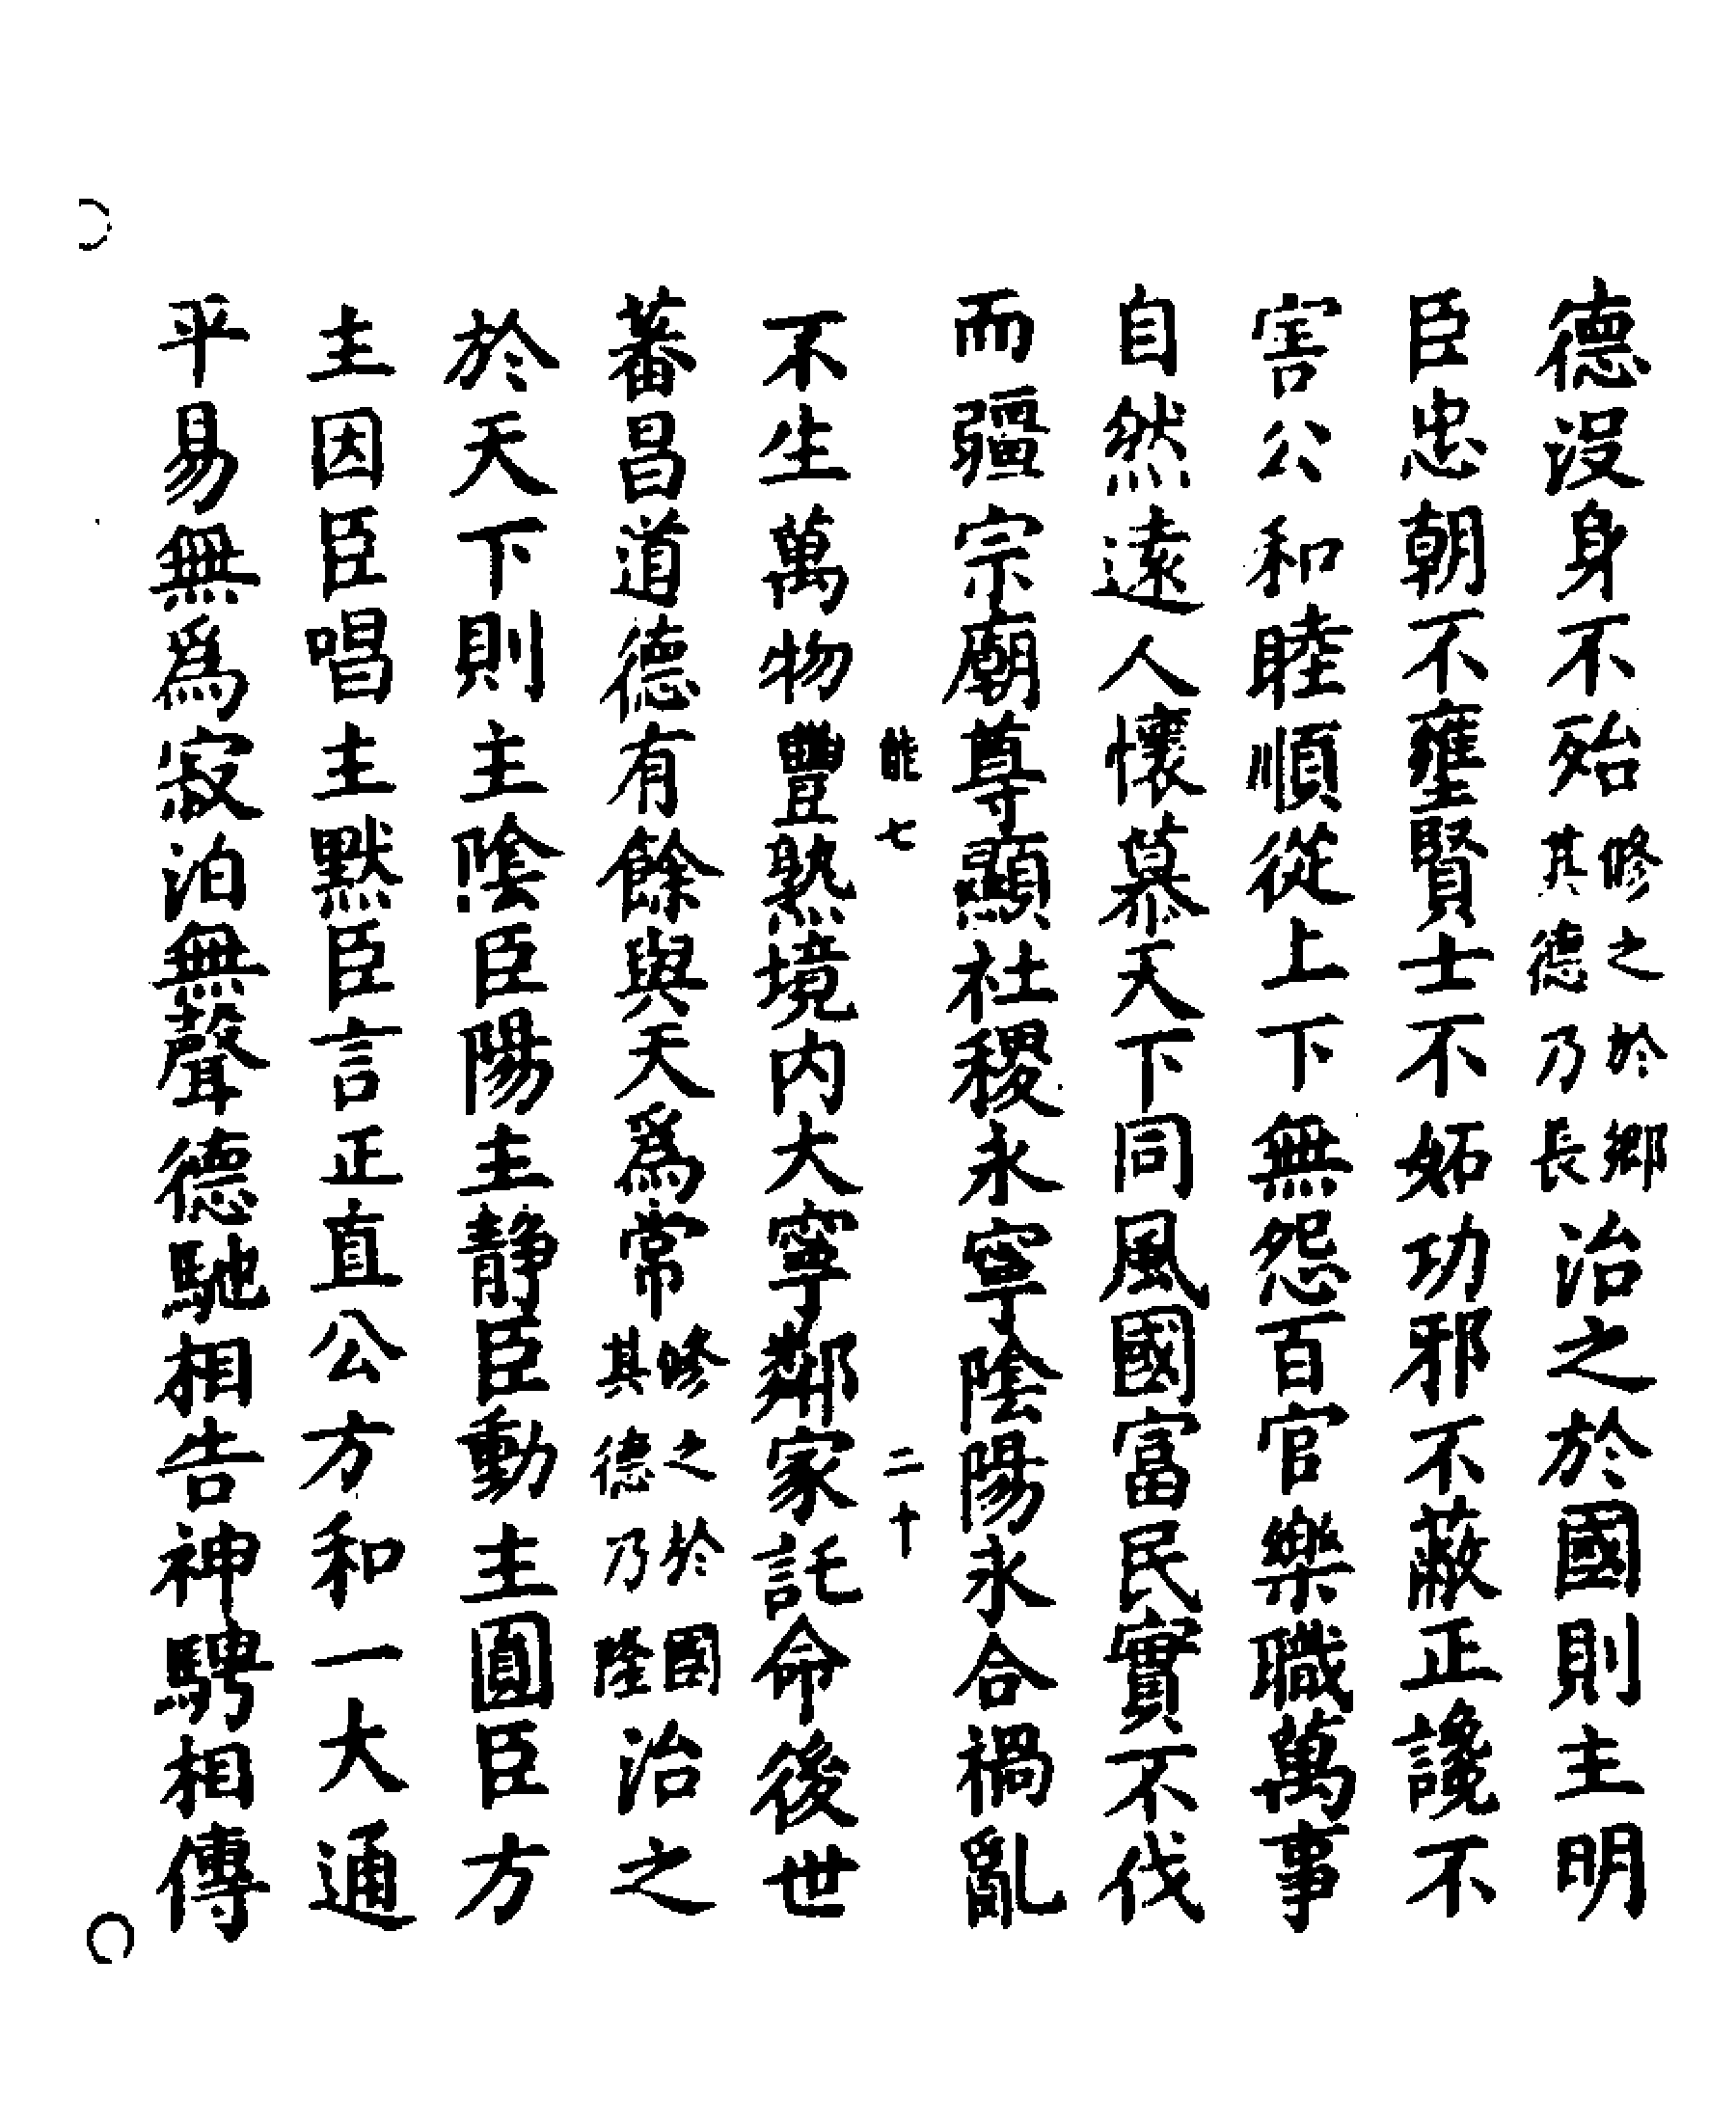 德沒身不殆修之於鄉其德乃長治之於國則主明
臣忠朝不壅賢士不妬功邪不蔽正讒不
害公和睦順從上下無怨百官樂職萬事
自然遠人懷慕天下同風國富民實不伐
而疆宗廟尊顯社稷永寧陰陽永合禍亂
能七 二十
不生萬物豐熟境内大寧鄰家託命後世
蕃昌道德有餘與天爲常修之於國其德乃隆治之
於天下則主陰臣陽主靜臣動主圓臣方
主因臣唱主默臣言正直公方和一大通
平易無爲寂泊無聲德馳相告神騁相傳